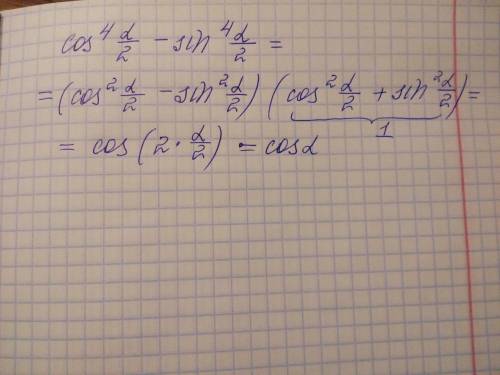 cos⁴ α/2 − sin⁴ α/2 =
= (cos² α/2 − sin² α/2) (cos² α/2 + sin² α/2) =
1
= cos (2 · α/2) = cosα